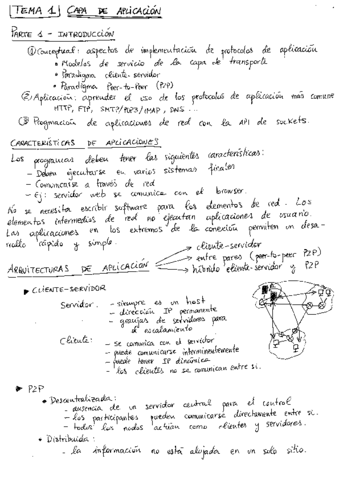 TEMA 1 CAPA DE APLICACIÓN
PARTE 1 - INTRODUCCIÓN
① Conceptual: aspectos de implementación de protocolos de aplicación
• Modelos de servicio de la capa de transporte
• Paradigma cliente-servidor
• Paradigma Peer-to-Peer (P2P)
② Aplicación: aprender el uso de los protocolos de aplicación más comunes
HTTP, FTP, SMTP/POP3/IMAP, DNS ...
③ Programación de aplicaciones de red con la API de sockets.
CARACTERÍSTICAS DE APLICACIONES
Los programas deben tener las siguientes características:
- Deben ejecutarse en varios sistemas finales
- Comunicarse a través de red
- Ej: servidor web se comunica con el browser.
No se necesita escribir software para los elementos de red. Los
elementos intermedios de red no ejecutan aplicaciones de usuario.
Las aplicaciones en los extremos de la conexión permiten un desa-
rrollo rápido y simple.
ARQUITECTURAS DE APLICACIÓN
→ cliente-servidor
→ entre pares (peer-to-peer P2P)
→ híbrido cliente-servidor y P2P
▶ CLIENTE-SERVIDOR
Servidor: - siempre es un host
- dirección IP permanente
- granjas de servidores para
el escalamiento
Cliente: - se comunica con el servidor
- puede comunicarse intermitentemente
- puede tener IP dinámica
- los clientes no se comunican entre sí.
▶ P2P
• Descentralizada:
- ausencia de un servidor central para el control
- los participantes pueden comunicarse directamente entre sí.
- todos los nodos actúan como clientes y servidores.
• Distribuida:
- la información no está alojada en un solo sitio.